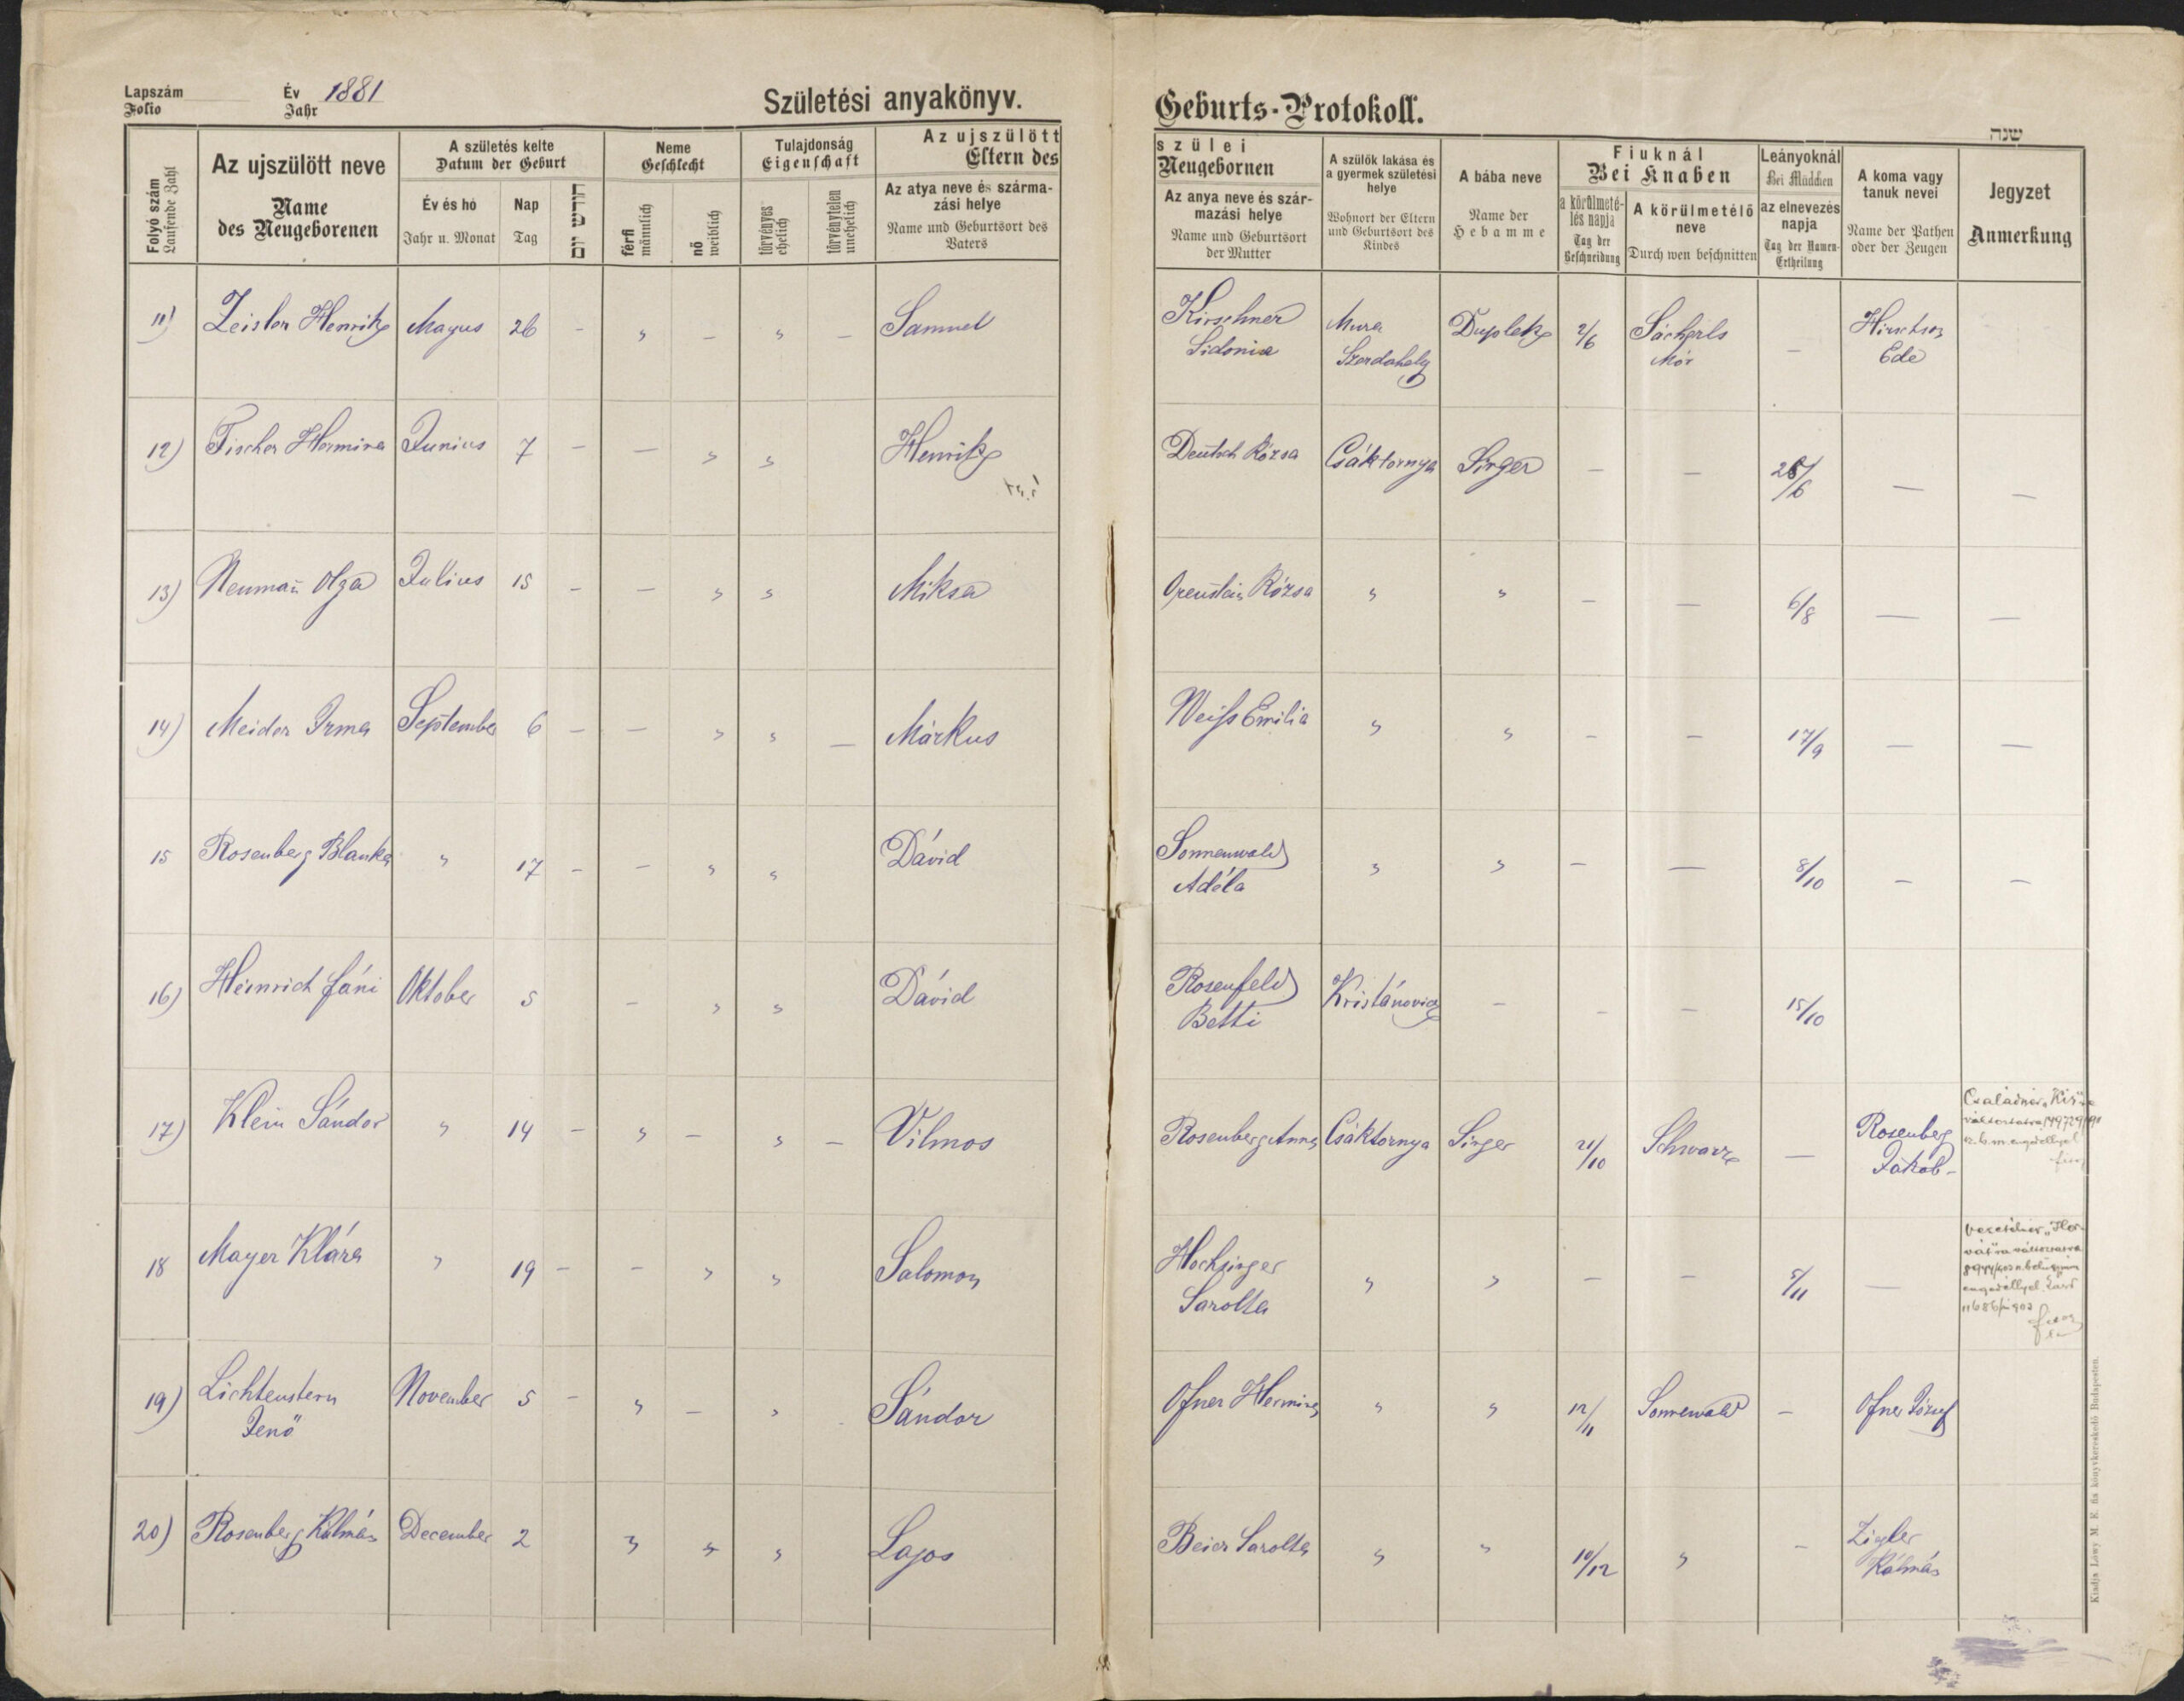 Lapszám
Folio
Év
Jahr
1881
Születési anyakönyv.
Geburts-Protokoll.
שנה
Folyó szám
Laufende Zahl
Az ujszülött neve
Name
des Neugeborenen
A születés kelte
Datum der Geburt
Év és hó
Jahr u. Monat
Nap
Tag
חודש יום
Neme
Geschlecht
férfi
männlich
nő
weiblich
Tulajdonság
Eigenschaft
törvényes
ehelich
törvénytelen
unehelich
Az ujszülött
Eltern des
Az atya neve és szárma-
zási helye
Name und Geburtsort des
Vaters
szülei
Neugebornen
Az anya neve és szár-
mazási helye
Name und Geburtsort
der Mutter
A szülők lakása és
a gyermek születési
helye
Wohnort der Eltern
und Geburtsort des
Kindes
A bába neve
Name der
Hebamme
Fiuknál
Bei Knaben
a körülmeté-
lés napja
Tag der
Beschneidung
A körülmetélő
neve
Durch wen beschnitten
Leányoknál
Bei Mädchen
az elnevezés
napja
Tag der Namen-
Ertheilung
A koma vagy
tanuk nevei
Name der Pathen
oder der Zeugen
Jegyzet
Anmerkung
11) Zeisler Henrik Mayus 26 - " - " - Samuel Kirschner Mura Duplek 2/6 Sácherls - Hirschson
Sidonia Szerdahely Mór Ede
12) Fischer Hermina Junius 7 - - " " Henrik Deutsch Rózsa Csáktornya Singer - - 26/6 - -
13) Neuman̄ Olga Julius 15 - - " " Miksa Orenstein Rózsa " " - - 6/8 - -
14) Meider Irma September 6 - - " " - Márkus Weiss Emilia " " - - 17/9 - -
15 Rosenberg Blanka " 17 - - " " Dávid Sonnenwald " " - - 8/10 - -
Adéla
16) Heinrich Fáni Oktober 5 - " " Dávid Rosenfeld Kristánovicz - - - 15/10
Betti
17) Klein Sándor " 14 - " - " - Vilmos Rosenberg Anna Csáktornya Singer 21/10 Schwarz - Rosenberg
Jakab -
18 Mayer Klára " 19 - - " " Salomon Hochsinger " " - - 5/11 -
Sarolta
19) Lichtenstern November 5 - " - " Sándor Ofner Hermina " " 12/11 Sonnewald - Ofner József
Jenő
20) Rosenberg Kálmán December 2 " " " Lajos Beier Sarolta " " 10/12 " - Zigler
Kálmán
Kiadja Löwy M. E. fia könyvkereskedő Budapesten.